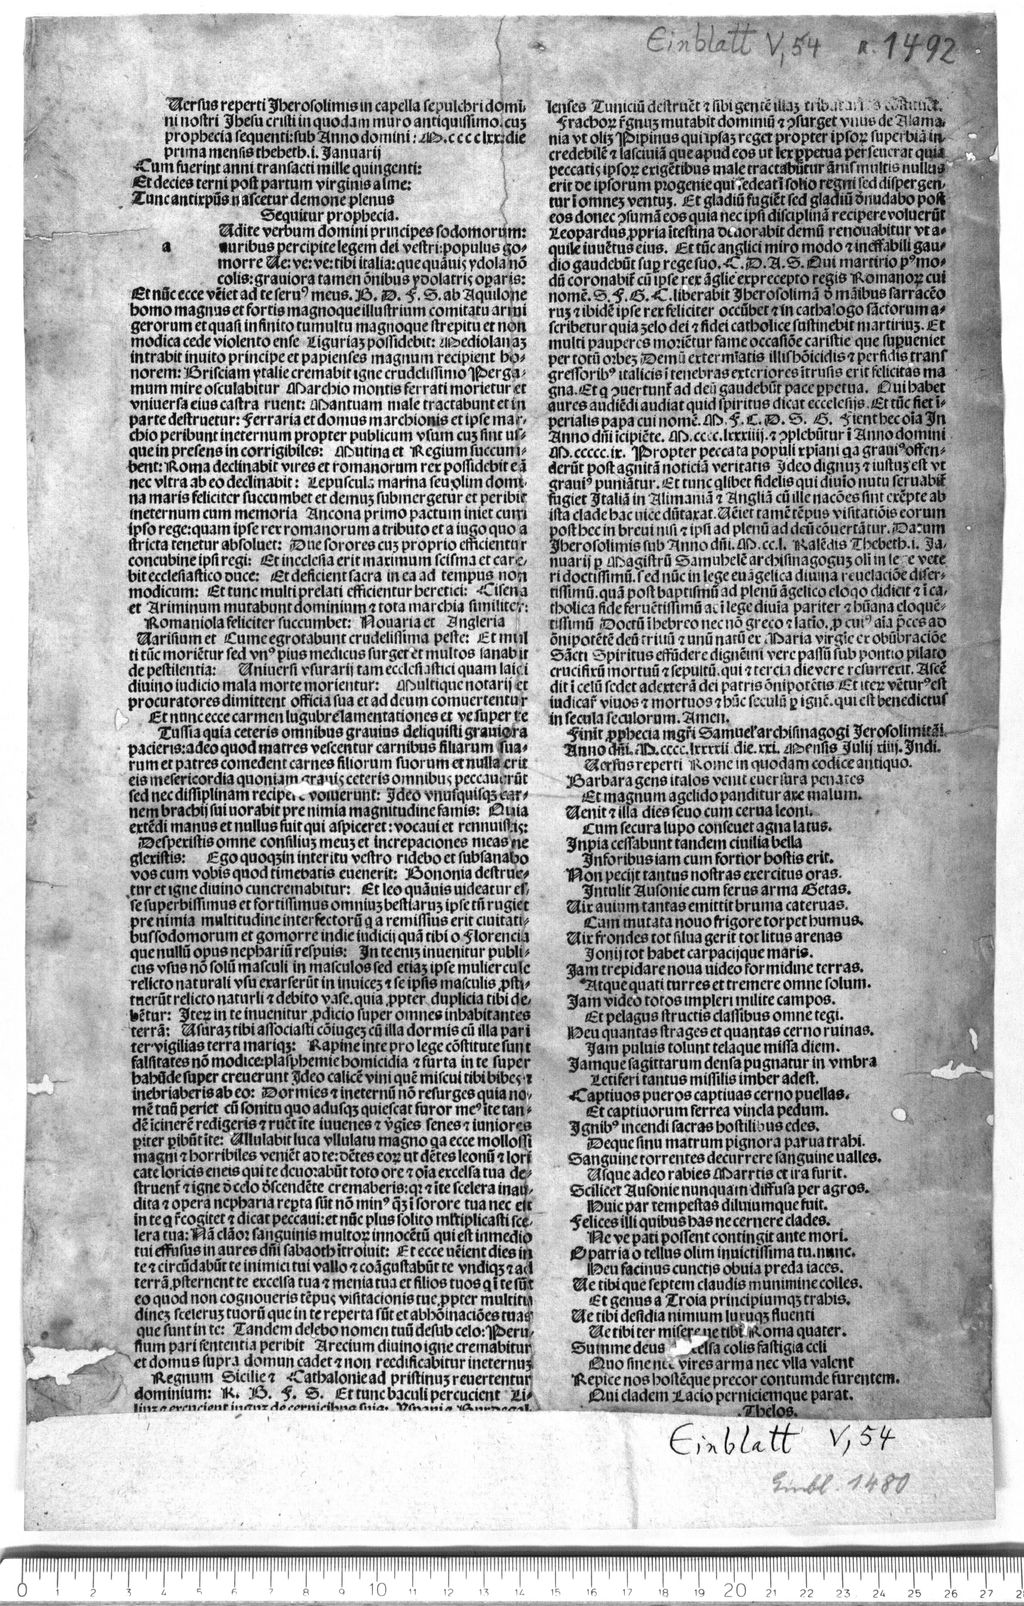 Einblatt V, 54 n. 1492
Uersus reperti Jherosolimis in capella sepulchri domi-
ni nostri Jhesu cristi in quodam muro antiquissimo. cuȝ
prophecia sequenti: sub Anno domini: M.cccclxx: die
prima mensis thebeth .i. Januarij
Cum fuerint anni transacti mille quingenti:
Et decies terni post partum virginis alme:
Tunc antixpūs nascetur demone plenus
Sequitur prophecia.
Udite verbum domini principes sodomorum:
a auribus percipite legem dei vestri: populus go-
morre Ue: ve: ve: tibi italia: que quāuis ydola nō
colis: grauiora tamen ōnibus ydolatris oparis:
Et nūc ecce vēiet ad te seruꝰ meus. B. D. F. S. ab Aquilone
homo magnus et fortis magnoque illustrium comitatu armi
gerorum et quasi infinito tumultu magnoque strepitu et non
modica cede violento ense Liguriaȝ possidebit: Mediolanaȝ
intrabit inuito principe et papienses magnum recipient ho-
norem: Brisciam ytalie cremabit igne crudelissimo Perga-
mum mire osculabitur Marchio montis ferrati morietur et
vniuersa eius castra ruent: Mantuam male tractabunt et in
parte destruetur: Ferraria et domus marchionis et ipse mar-
chio peribunt ineternum propter publicum vsum cuȝ sint us-
que in presens in corrigibiles: Mutina et Regium succum-
bent: Roma declinabit vires et romanorum rex possidebit eā
nec vltra ab eo declinabit: Lepuscula marina seu olim domi-
na maris feliciter succumbet et demuȝ submergetur et peribit
ineternum cum memoria Ancona primo pactum iniet cum
ipso rege: quam ipse rex romanorum a tributo et a iugo quo a
stricta tenetur absoluet: Due sorores cuȝ proprio efficientur
concubine ipsi regi: Et inecclesia erit maximum scisma et care-
bit ecclesiastico duce: Et deficient sacra in ea ad tempus non
modicum: Et tunc multi prelati efficientur heretici: Cisena
et Ariminum mutabunt dominium & tota marchia similiter:
Romaniola feliciter succumbet: Nouaria et Angleria
Uarisum et Cume egrotabunt crudelissima peste: Et mul
ti tūc moriētur sed vnꝰ pius medicus surget et multos sanabit
de pestilentia: Uniuersi vsurarij tam ecclesiastici quam laici
diuino iudicio mala morte morientur: Multique notarij et
procuratores dimittent officia sua et ad deum comuertentur
Et nunc ecce carmen lugubre lamentationes et ve super te
Tussia quia ceteris omnibus grauius deliquisti grauiora
pacieris: adeo quod matres vescentur carnibus filiarum sua-
rum et patres comedent carnes filiorum suorum et nulla erit
eis mesericordia quoniam grauiȝ ceteris omnibus peccauerūt
sed nec dissiplinam recipere voluerunt: Ideo vnusquisqȝ car-
nem brachij sui uorabit pre nimia magnitudine famis: Quia
extēdi manus et nullus fuit qui aspiceret: vocaui et rennuistis:
Despexistis omne consiliuȝ meuȝ et increpaciones meas ne
glexistis: Ego quoqȝ in interitu vestro ridebo et subsanabo
vos cum vobis quod timebatis euenerit: Bononia destrue-
tur et igne diuino cuncremabitur: Et leo quāuis uideatur es-
se superbissimus et fortissimus omniuȝ bestiaruȝ ipse tū rugiet
pre nimia multitudine interfectorū qa remissius erit ciuitati-
bus sodomorum et gomorre in die iudicij quā tibi o Florencia
que nullū opus nephariū respuis: In te eniȝ inuenitur publi-
cus vsus nō solū masculi in masculos sed etiaȝ ipse muliercule
relicto naturali vsu exarserūt in inuiceȝ & se ipsis masculis psti-
tuerūt relicto naturli & debito vase. quia ppter duplicia tibi de-
bētur: Iteȝ in te inuenitur pdicio super omnes inhabitantes
terrā: Usuraȝ tibi associasti cōiugeȝ cū illa dormis cū illa pari
ter vigilias terra mariqȝ: Rapine inte pro lege cōstitute sunt
falsitates nō modice: plasphemie homicidia & furta in te super
habūde super creuerunt Ideo calicē vini quē miscui tibi bibeȝ &
inebriaberis ab eo: Dormies & ineternū nō resurges quia no-
mē tuū periet cū sonitu quo adusqȝ quiescat furor meꝰ ite tan-
dē icinerē redigeris & ruēt ite iuuenes & ỹgies senes & iuniores
piter pibūt ite: Ullulabit luca vllulatu magno qa ecce mollossi
magni & horribiles veniēt ad te: dētes eoꝝ ut dētes leonū & lori
cate loricis eneis qui te deuorabūt toto ore & oīa excelsa tua de-
struent & igne ō celo ōscendēte cremaberis: qꝛ & ite scelera inau-
dita & opera nepharia repta sūt nō minꝰ qȝ i sorore tua nec est
in te q rēcogitet & dicat peccaui: et nūc plus solito mltiplicasti sce-
lera tua: Nā clāor sanguinis multoꝝ innocētū qui est inmedio
tui effusus in aures dn̄i sabaoth itroiuit: Et ecce uēient dies in
te & circūdabūt te inimici tui vallo & coāgustabūt te vndiqȝ & ad
terrā psternent te excelsa tua & menia tua et filios tuos qi te sūt
eo quod non cognoueris tēpus visitacionis tue ppter multitu
dineȝ sceleruȝ tuorū que in te reperta sūt et abhōinaciōes tuas
que sunt in te: Tandem delebo nomen tuū desub celo: Peru-
sium pari sententia peribit Arecium diuino igne cremabitur
et domus supra domun cadet & non reedificabitur ineternuȝ
Regnum Sicilie & Cathalonie ad pristinuȝ reuertentur
dominium: R. B. F. S. Et tunc baculi percucient Li-
liuȝ & excucient iuguȝ de ceruicibus suis: Yspania Burdegal
lenses Tuniciū destruēt & sibi gentē illaȝ tributarias cōstituēt.
Frāchoꝝ rēgnuȝ mutabit dominiū & ꝯsurget vnus de Alama-
nia vt oliȝ Pipinus qui ipsaȝ reget propter ipsoꝝ superbiā in-
credebilē & lasciuiā que apud eos ut lex ppetua perseuerat quia
peccatis ipsoꝝ exigētibus male tractabūtur ānis multis nullus
erit de ipsorum progenie qui sedeat i solio regni sed dispergen-
tur i omneȝ ventuȝ. Et gladiū fugiēt sed gladiū ōnudabo post
eos donec ꝯsumā eos quia nec ipsi disciplinā recipere voluerūt
Leopardus ppria itestina deuorabit demū renouabitur vt a-
quile iuuētus eius. Et tūc anglici miro modo & ineffabili gau-
dio gaudebūt sup rege suo. C. D. A. S. Qui martirio pꝰmo-
dū coronabit cū ipse rex āglie exprecepto regis Romanoꝝ cui
nomē. S. F. G. C. liberabit Jherosolimā ō māibus sarraceo
ruȝ & ibidē ipse rex feliciter occūbet & in cathalogo sāctorum a-
scribetur quia zelo dei & fidei catholice sustinebit martiriuȝ. Et
multi pauperes moriētur fame occasiōe caristie que supueniet
per totū orbeȝ Demū exterminatis illis hōicidis & perfidis trans
gressoribꝰ italicis i tenebras exteriores itrusis erit felicitas ma
gna. Et q ꝯuertunt ad deū gaudebūt pace ppetua. Qui habet
aures audiēdi audiat quid spiritus dicat ecclesijs. Et tūc fiet i-
perialis papa cui nomē. M. F. C. D. S. G. Fient hec oīa In
Anno dn̄i icipiēte. M.cccc.lxxxiiij. & ꝯplebūtur i Anno domini
M.ccccc.ix. Propter peccata populi xpiani qa grauiꝰ offen-
derūt post agnitā noticiā veritatis Ideo dignuȝ & iustuȝ est vt
grauiꝰ puniātur. Et tunc qlibet fidelis qui diuio nutu seruabit
fugiet Italiā in Alimaniā & Angliā cū ille nacōes sint exēpte ab
ista clade hac vice dūtaxat. Ueniet tamē tēpus visitatiōis eorum
post hec in breui nisi & ipsi ad plenū ad deū cōuertātur. Datum
Jherosolimis sub Anno dn̄i. M.cc.l. Kalēdis Thebeth .i. Ja-
nuarij p Magistrū Samuhelē archisinagoguȝ oli in lege vete
ri doctissimū. sed nūc in lege euāgelica diuina reuelaciōe diser-
tissimū. quā post baptismū ad plenū āgelico eloqo didicit & i ca-
tholica fide feruētissimū ac i lege diuia pariter & hūana eloquē-
tissimū Doctū ihebreo nec nō greco & latio. p cuiꝰ aīa pces ad
ōnipotētē deū triuū & unū natū ex Maria virgie ex obūbraciōe
Sācti Spiritus effūdere dignemini vere passū sub pontio pilato
crucifixū mortuū & sepultū. qui & tercia die vere resurrexit. Ascē
dit i celū sedet adexterā dei patris ōnipotētis. Et iteꝝ vēturꝰ est
iudicar viuos & mortuos & huc seculū p ignē. qui est benedictus
in secula seculorum. Amen.
Finit pphecia mgri Samuel archisinagogi Jerosolimitāi.
Anno dn̄i. M.cccc.lxxxxij die.xxi. Mensis Julij xiiij. Indi.
Uersus reperti Rome in quodam codice antiquo.
Barbara gens italos venit euersura penates
Et magnum agelido panditur axe malum.
Uenit & illa dies seuo cum cerua leoni.
Cum secura lupo conseuet agna latus.
Inpia cessabunt tandem ciuilia bella
Inforibus iam cum fortior hostis erit.
Non pecijt tantus nostras exercitus oras.
Intulit Ausonie cum ferus arma Getas.
Uix auium tantas emittit bruma cateruas.
Cum mutata nouo frigore torpet humus.
Uix frondes tot silua gerit tot litus arenas
Ionij tot habet carpacijque maris.
Jam trepidare noua video formidine terras.
Atque quati turres et tremere omne solum.
Jam video totos impleri milite campos.
Et pelagus structis classibus omne tegi.
Heu quantas strages et quantas cerno ruinas.
Jam puluis tolunt telaque missa diem.
Jamque sagittarum densa pugnatur in vmbra
Letiferi tantus missilis imber adest.
Captiuos pueros captiuas cerno puellas.
Et captiuorum ferrea vincla pedum.
Ignibꝰ incendi sacras hostilibus edes.
Deque sinu matrum pignora parua trahi.
Sanguine torrentes decurrere sanguine ualles.
Usque adeo rabies Marrtis et ira furit.
Scilicet Ausonie nunquam diffusa per agros.
Huic par tempestas diluuiumque fuit.
Felices illi quibus has ne cernere clades.
Ne ve pati possent contingit ante mori.
O patria o tellus olim inuictissima tu. nunc.
Heu facinus cunctis obuia preda iaces.
Ue tibi que septem claudis munimine colles.
Et genus a Troia principiumqȝ trahis.
Ue tibi desidia nimium luxuqȝ fluenti
Ue tibi ter misere ue tibi Roma quater.
Summe deus excelsa colis fastigia celi
Quo sine nec vires arma nec vlla valent
Repice nos hostēque precor contumde furentem.
Qui cladem Lacio perniciemque parat.
.Thelos.
Einblatt V, 54
Einbl. 1480
0 1 2 3 4 5 6 7 8 9 10 11 12 13 14 15 16 17 18 19 20 21 22 23 24 25 26 27 28